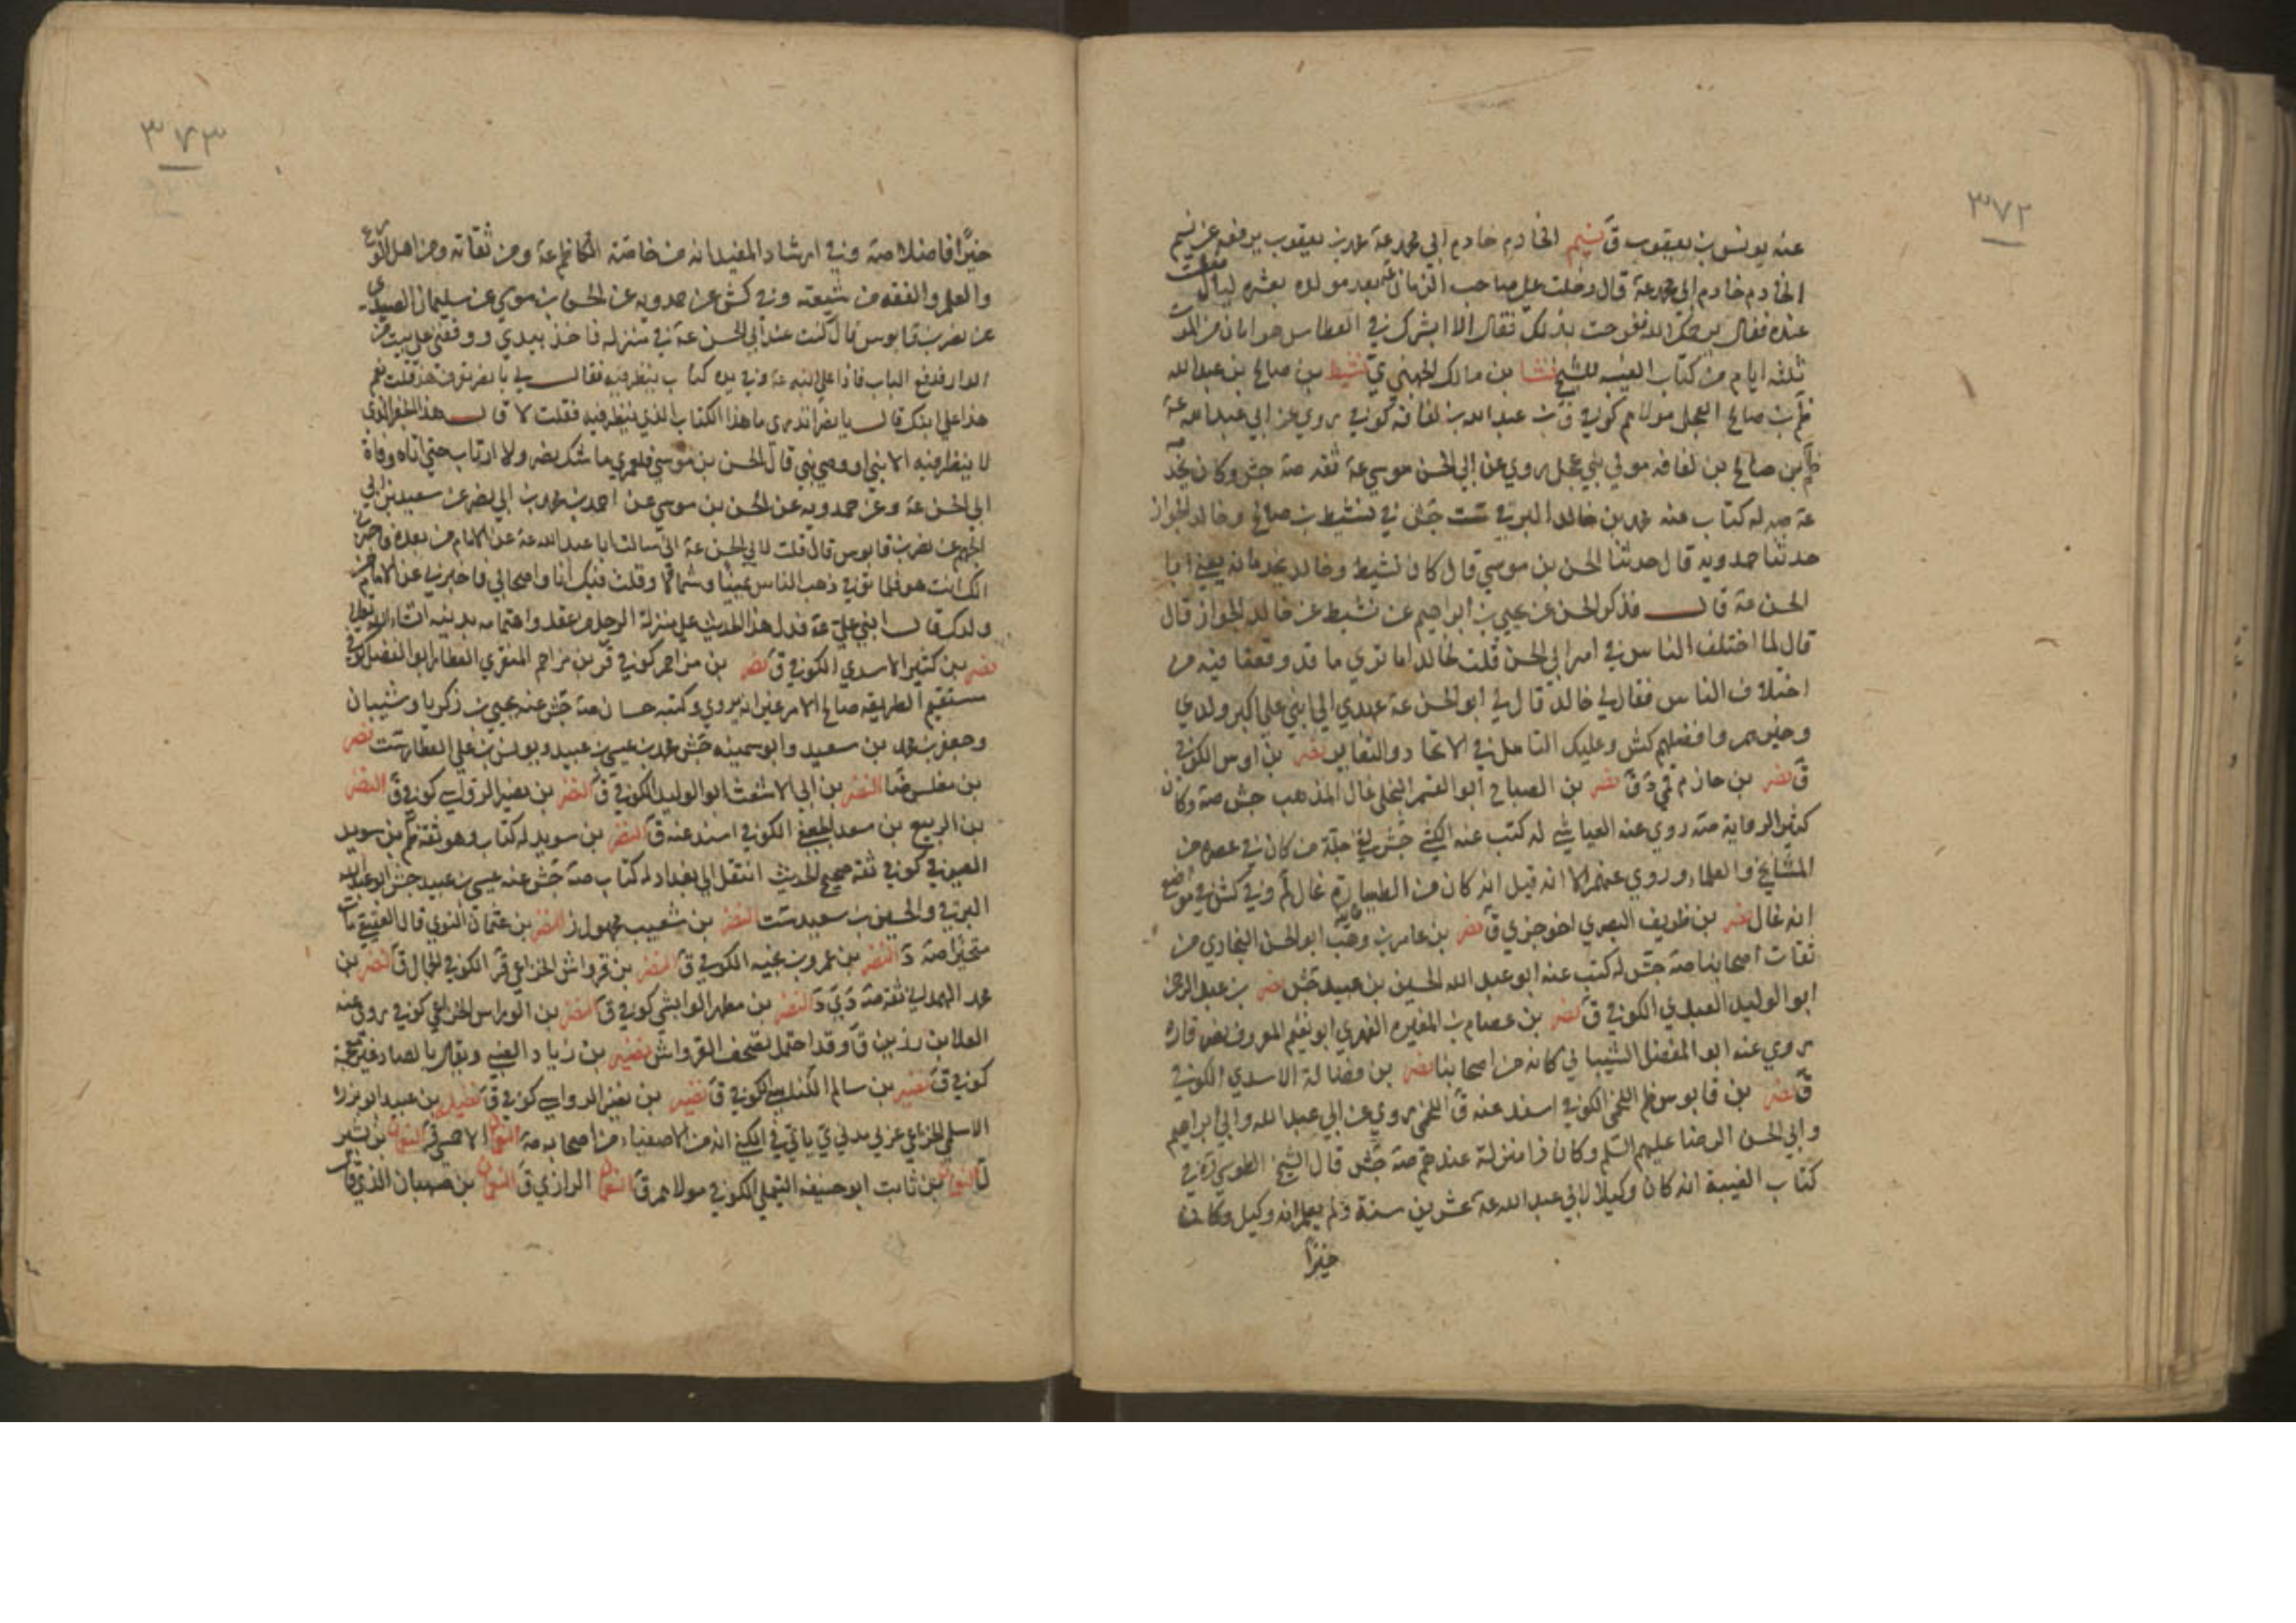 ٣٧٢
عنه يونس بن يعقوب ق نسيم الخادم خادم ابي محمد عة محمد بن يعقوب يرفعه عن نسيم
الخادم خادم ابي محمد عة قال دخلت على صاحب الزمان عة بعد مولده بعشر ليال فعطست
عنده فقال يرحمك الله ففرحت بذلك فقال الا ابشرك في العطاس هو امان من الموت
ثلثه ايام من كتاب الغيبه للشيخ نشا بن مالك الجهني ي نشيط بن صالح بن عبد الله
ظم بن صالح العجلي مولاهم كوفي ق بن عبد الله بن لفافه كوفي روي عن ابي عبد الله عة
ظم بن صالح بن لفافه مولي بني عجل روي عن ابي الحسن موسي عة ثقه صة جش وكان يخد
عة صه له كتاب عنه محمد بن خالد البرقي ست جش في نشيط بن صالح وخالد الجواز
حدثنا حمدويه قال حدثنا الحسن بن موسي قال كان نشيط وخالد يخدمانه يعني ابا
الحسن عة قال فذكر الحسن عن يحيي بن ابراهيم عن نشيط عن خالد الجواز قال
قال لما اختلف الناس في امر ابي الحسن قلت لخالد اما تري ما قد وقعنا فيه من
اختلاف الناس فقال لي خالد قال لي ابو الحسن عة عهدي الي ابني علي اكبر ولدي
وخيرهم وافضلهم كش وعليك التامل في الاتحاد والتغاير نصر بن اوس الكوفي
ق نصر بن حازم قمي د ق نصر بن الصباح ابو القسم البلخي غال المذهب جش صة وكان
كثير الرواية صة روي عنه العياشي له كتب عنه الكشي جش لقي جلة من كان في عصره من
المشايخ والعلماء وروي عنهم الا انه قيل انه كان من الطيارة غال لم وفي كش في مواضع
انه غال نصر بن طريف البصري اخو جزي ق نصر بن عامر بن وهب ابو الحسن السنجاري من
ثقات اصحابنا صة جش له كتب عنه ابو عبد الله الحسين بن عبيد جش نصر بن عبد الرحمن
ابو الوليد العبدي الكوفي ق نصر بن عصام بن المغيره الفهري ابو نعيم المعروف بقرقاره
روي عنه ابو المفضل الشيباني كانه من اصحابنا نصر بن فضالة الاسدي الكوفي
ق نصر بن قابوس ظم اللخمي الكوفي اسند عنه ق اللخمي روي عن ابي عبد الله وابي ابراهيم
وابي الحسن الرضا عليهم السلم وكان ذا منزلة عندهم صة جش قال الشيخ الطوسي ره في
كتاب الغيبة انه كان وكيلا لابي عبد الله عة عشرين سنة ولم يعلم انه وكيل وكان
خيرًا
٣٧٣
خيرًا فاضلا صة وفي ارشاد المفيد انه من خاصة الكاظم عة ومن ثقاته ومن اهل الورع
والعلم والفقه من شيعته وفي كش عن حمدويه عن الحسن بن موسي عن سليمان الصيدي
عن نصر بن قابوس قال كنت عند ابي الحسن عة في منزله فاخذ بيدي ووقفني علي بيت من
الدار فدفع الباب فاذا علي ابنه عة وفي يده كتاب ينظر فيه فقال لي يا نصر تعرف هذا قلت نعم
هذا علي ابنك قال يا نصر اتدري ما هذا الكتاب الذي ينظر فيه فقلت لا قال هذا الجفر الذي
لا ينظر فيه الا نبي او وصي نبي قال الحسن بن موسي فلعمري ما شك نصر ولا ارتاب حتي اتاه وفاة
ابي الحسن عة وعن حمدويه عن الحسن بن موسي عن احمد بن محمد بن ابي نصر عن سعيد بن ابي
الجهم عن نصر بن قابوس قال قلت لابي الحسن عة اني سالت اباعبد الله عة عن الامام من بعده فاخبرني
انك انت هو فلما توفي ذهب الناس يمينًا وشمالا وقلت فيك انا واصحابي فاخبرني عن الامام من
ولدك قال ابني علي عة فدل هذا الحديث علي منزلة الرجل من عقله واهتمامه بدينه انشاء الله تعالي
نصر بن كثير الاسدي الكوفي ق نصر بن مزاحم كوفي قر بن مزاحم المنقري العطار ابو الفضل كوفي
مستقيم الطريقه صالح الامر غير انه يروي وكتبه حسان صة جش عنه يحيي بن زكريا وشيبان
وجعفر بن محمد بن سعيد وابو سمينه جش محمد بن عيسي بن عبيد ويونس بن علي العطار ست نصر
بن مغلس ضا النضر بن ابي الاشعث ابو الوليد الكوفي ق النضر بن نصير الرواب كوفي ق النضر
بن الربيع بن سعد الجعفي الكوفي اسند عنه ق النضر بن سويد له كتاب وهو ثقه ظم بن سويد
الصيرفي كوفي ثقه صحيح الحديث انتقل الي بغداد له كتاب صة جش عنه عيسي بن عبيد جش ابو عبد الله
البرقي والحسين بن سعيد ست النضر بن شعيب مجهول ز النضر بن عثمان النوي قال العقيقي مات
متحيرًا صة د النضر بن عمرو بن غنيه الكوفي ق النضر بن قرواش الخزاعي قر الكوفي الجمال ق النضر بن
محمد الهمداني ثقه صة د ي د النضر بن مطهر الوابشي كوفي ق النضر بن الوراس الخزاعي كوفي روي عنه
العلا بن رزين ق وقد احتمل تصحيف القرواش نضير بن زياد الغبي ويقال بالصاد غير معجمة
كوفي ق نضير بن سالم الكندي الكوفي ق نضير بن نضير الدواب كوفي ق نضيله بن عبيد ابو برزة
الاسلمي الخزاعي عربي مدني ي ياتي في الكني انه من الاصفياء من اصحابه صة النعمان الاحمسي قر النعمان بن بشير
ل النعمان بن ثابت ابو حنيفه التيملي الكوفي مولاهم ق النعمان الرازي ق النعمان بن صهبان الذي قال